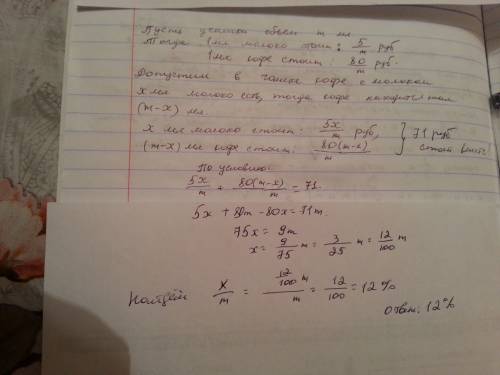 Пусть чашка объём m мл
Тогда 1мл молоко стоит: 5/m руб
1мл кофе стоит: 80/m руб.
Допустим в чашке кофе с молоком
x мл молоко есть, тогда кофе находится там
(m-x) мл.
x мл молоко стоит: 5x/m руб,
(m-x) мл кофе стоит: 80(m-x)/m } 71 руб стоит вместе
По условию:
5x/m + 80(m-x)/m = 71.
5x + 80m - 80x = 71m.
75x = 9m
x = 9/75 m = 3/25 m = 12/100 m
Найдём x/m = 12/100 m / m = 12/100 = 12%
Ответ: 12%